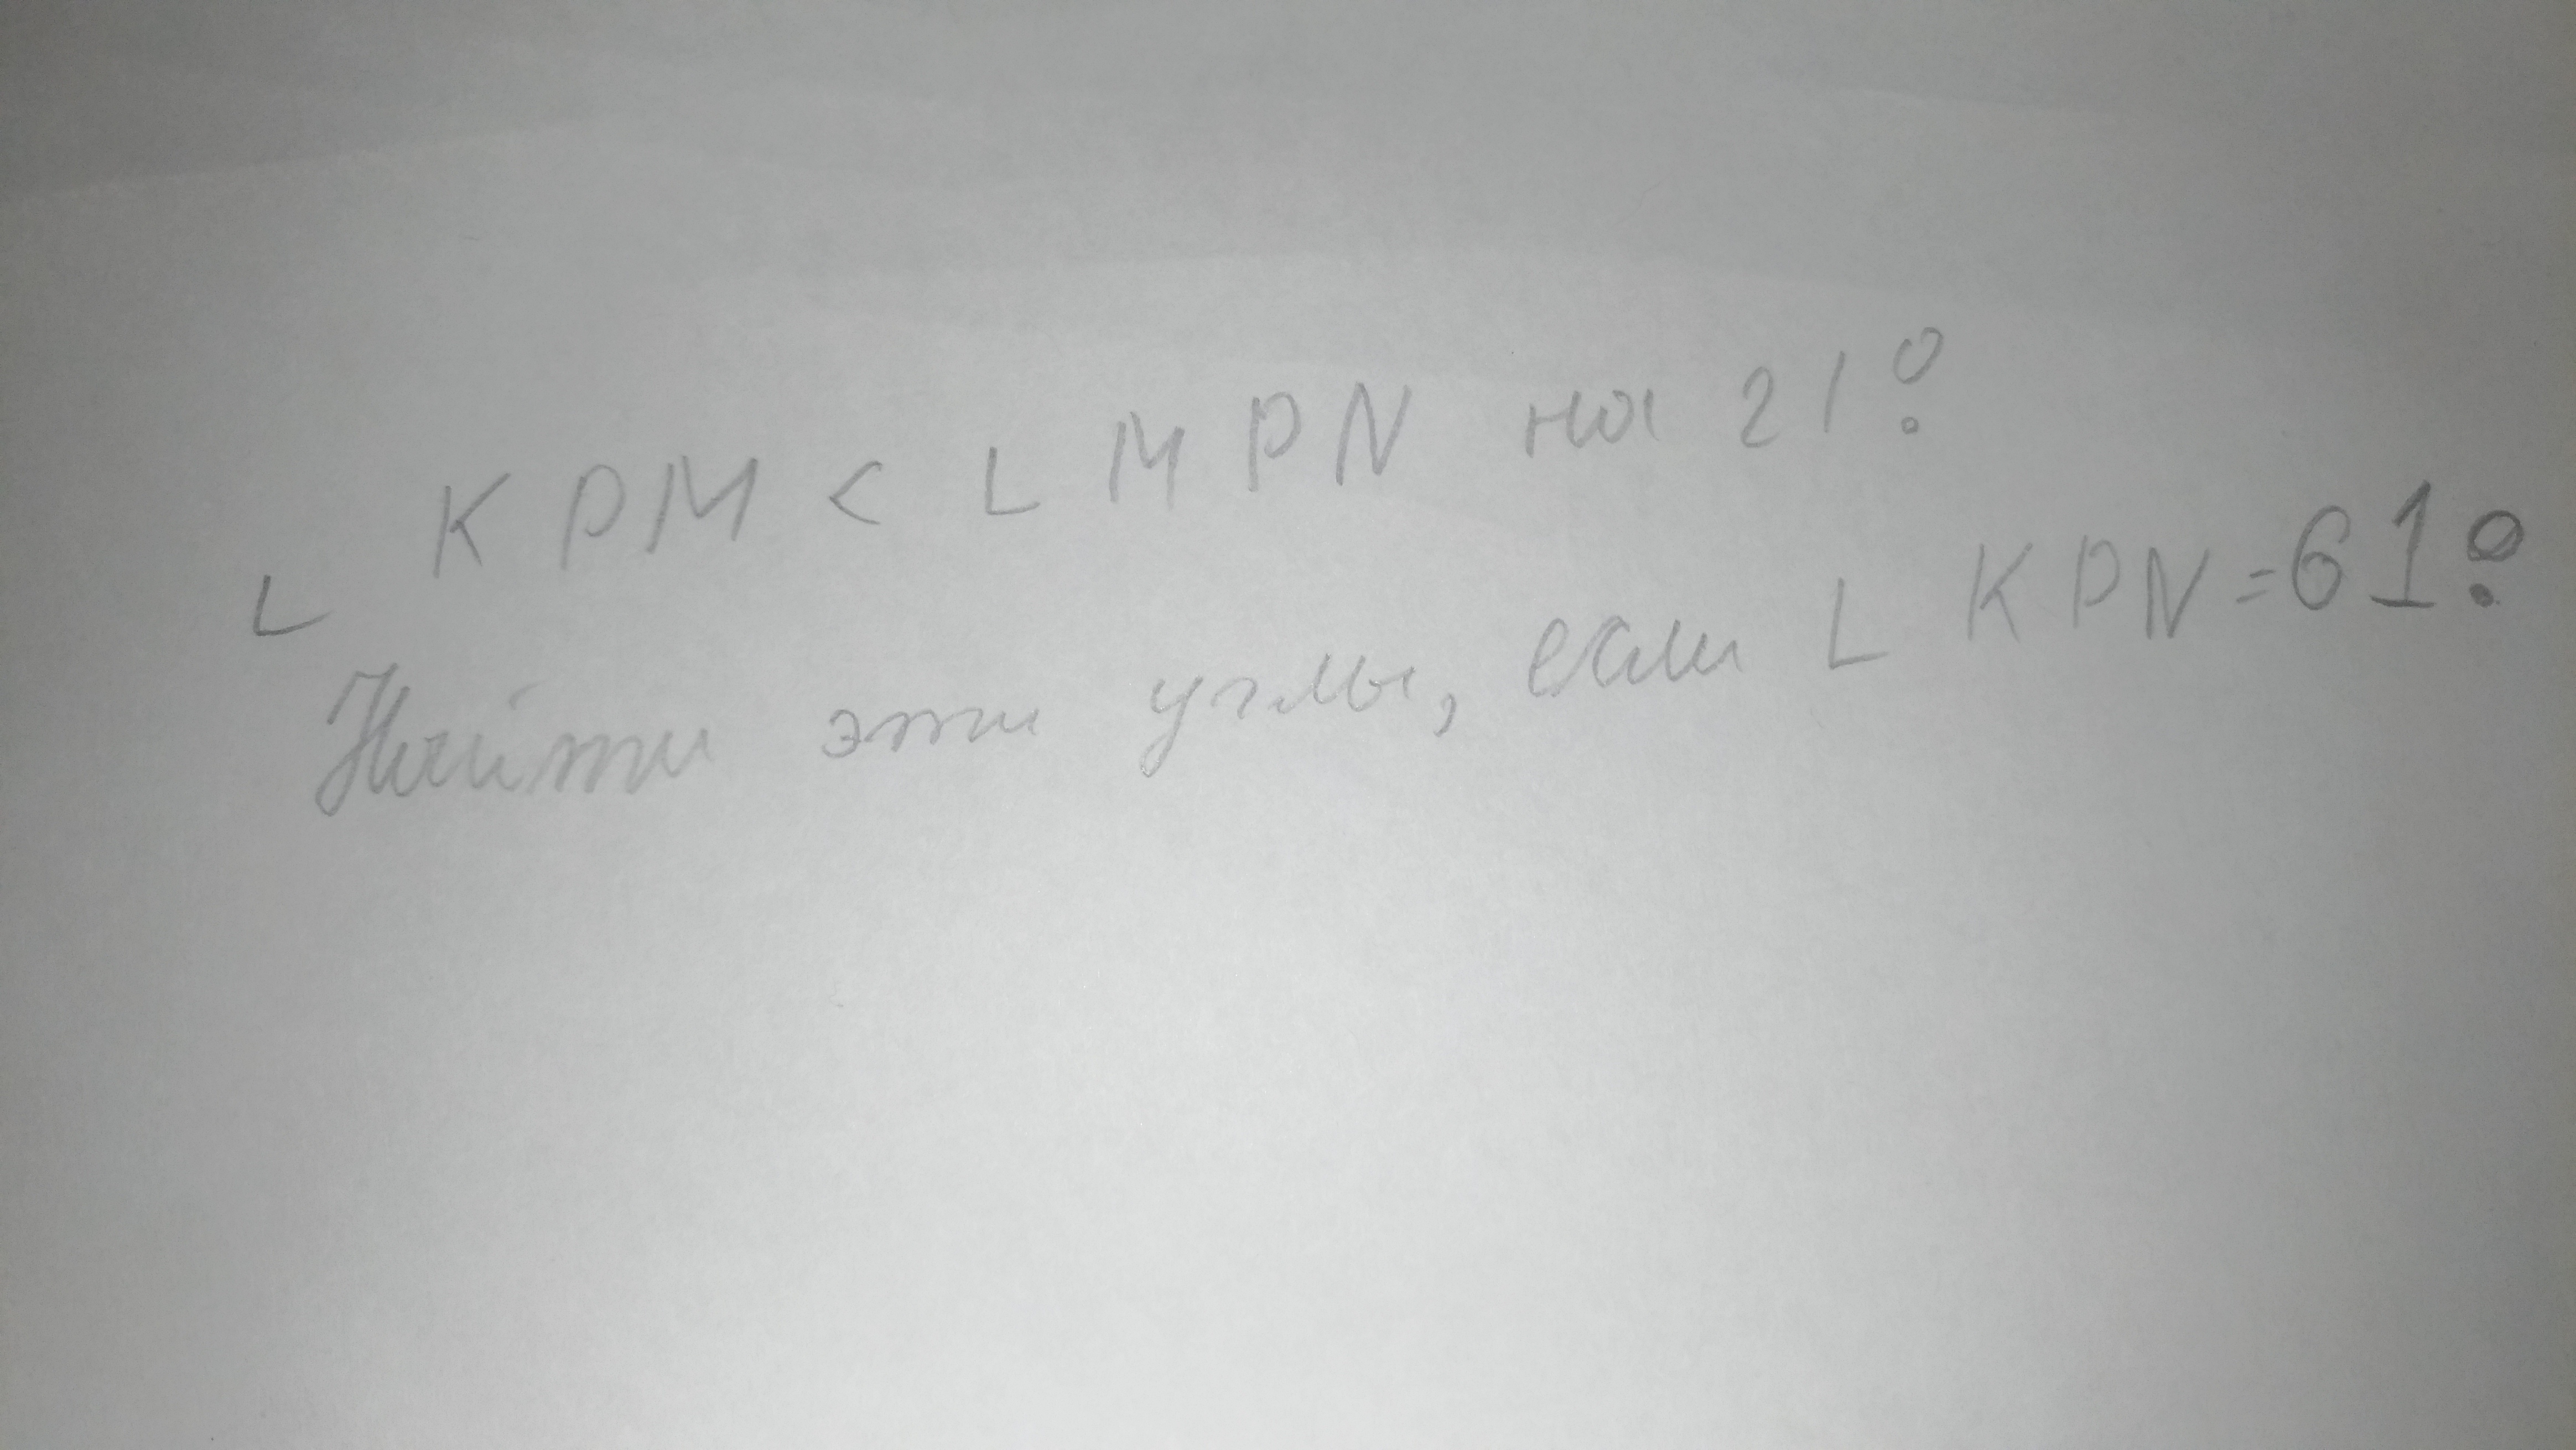 ∠ KPM < ∠ MPN на 21°.
Найти эти углы, если ∠ KPN = 61°.